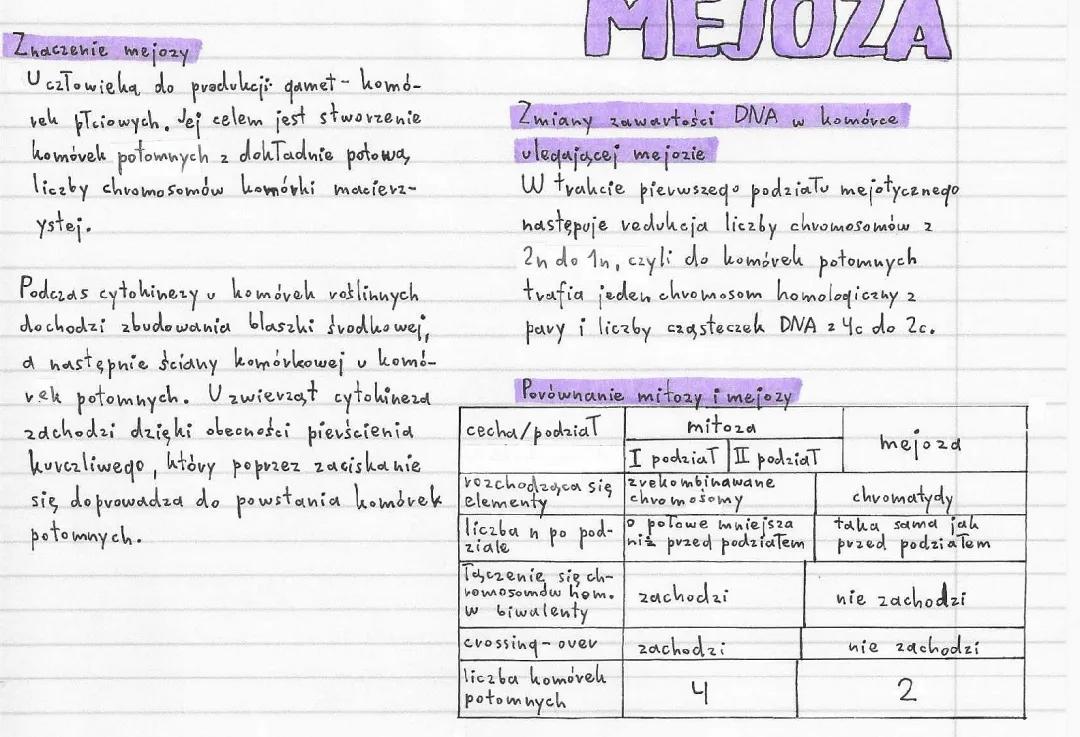 MEJOZA
Znaczenie mejozy
U człowieka do produkcji gamet - komó-
rek płciowych. Jej celem jest stworzenie
komórek potomnych z dokładnie połową
liczby chromosomów komórki macierz-
ystej.
Podczas cytokinezy u komórek roślinnych
dochodzi zbudowania blaszki środkowej,
a następnie ściany komórkowej u komó-
rek potomnych. U zwierząt cytokineza
zachodzi dzięki obecności pierścienia
kurczliwego, który poprzez zaciskanie
się doprowadza do powstania komórek
potomnych.
Zmiany zawartości DNA w komórce
ulegającej mejozie
W trakcie pierwszego podziału mejotycznego
następuje redukcja liczby chromosomów z
2n do 1n, czyli do komórek potomnych
trafia jeden chromosom homologiczny z
pary i liczby cząsteczek DNA z 4c do 2c.
Porównanie mitozy i mejozy
cecha/podział
mitoza
mejoza
I podział
II podział
rozchodząca się
elementy
zrekombinawane
chromosomy
chromatydy
liczba n po pod-
ziale
o połowe mniejsza
niż przed podziałem
taka sama jak
przed podziałem
łączenie się ch-
romosomów hom.
w biwalenty
zachodzi
nie zachodzi
crossing-over
zachodzi
nie zachodzi
liczba komórek
potomnych
4
2